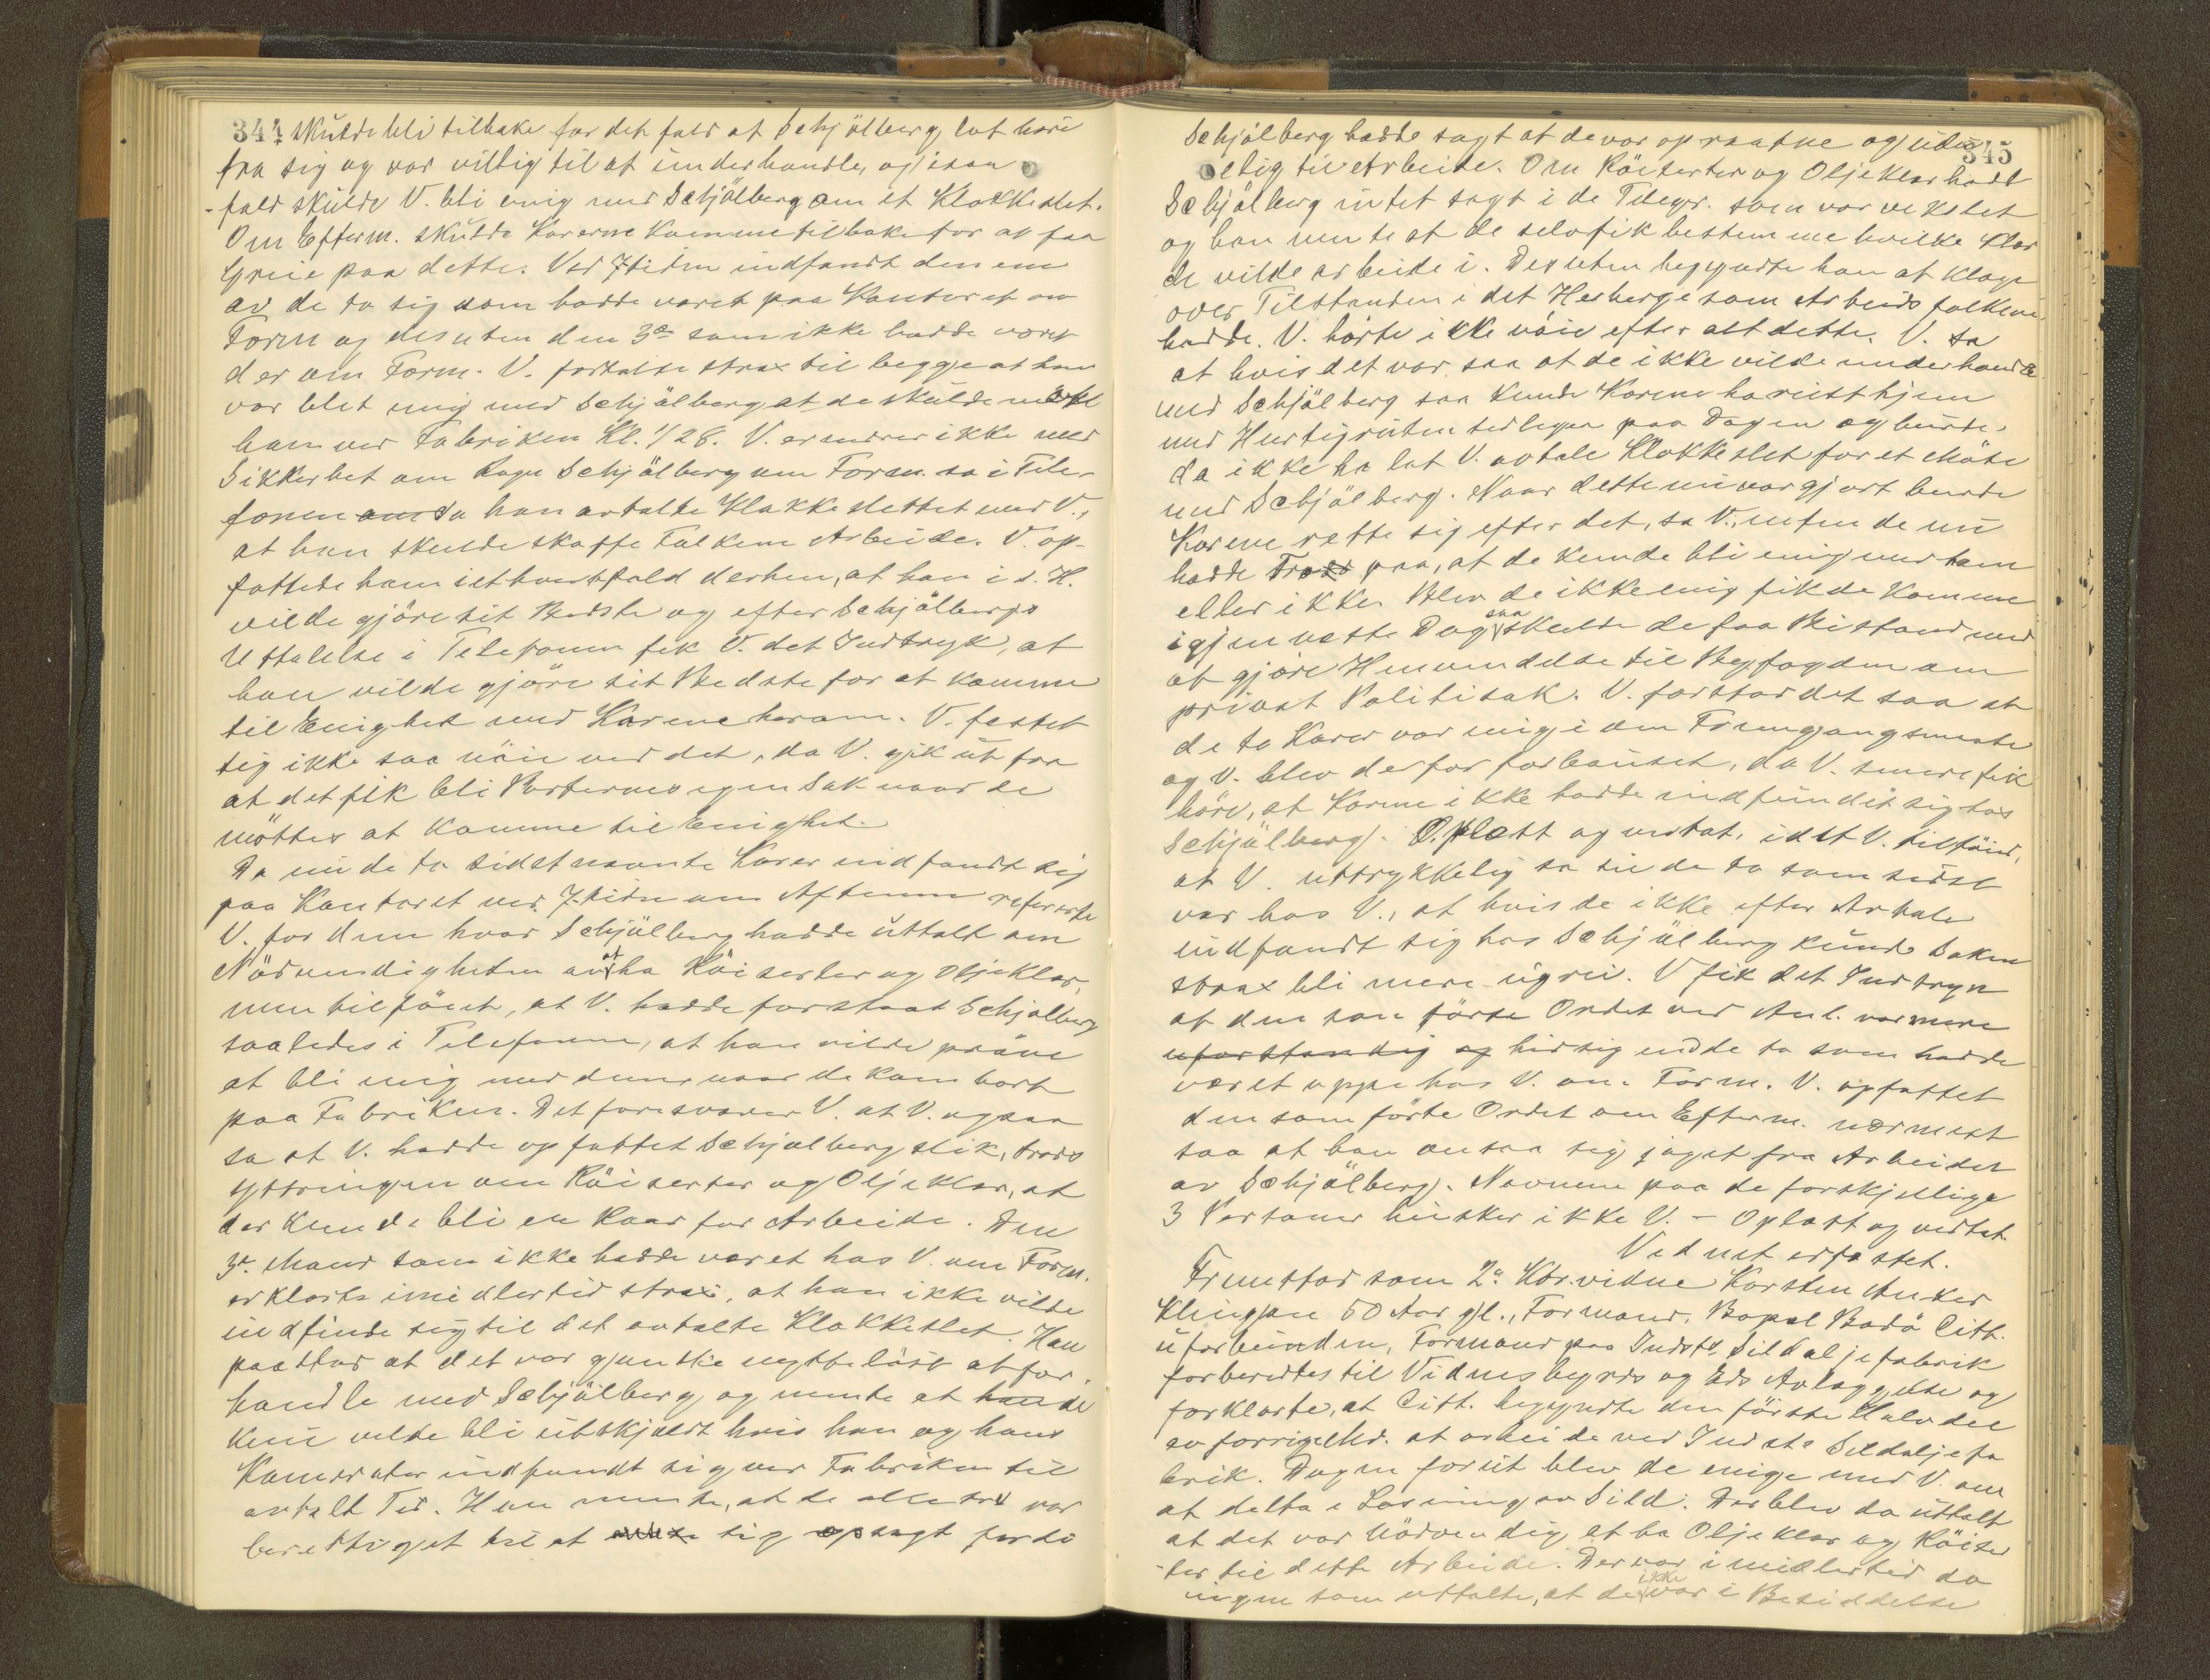 344 skulde bli tilbake for det fald at Schjölberg lot höre
fra sig og var villig til at underhandle, og isaa
-fald skulde V. bli enig med Schjölberg om et Klokkeslet.
Om Efterm. skulde Karerne komme tilbake for at faa
Greie paa dette. Ved 7 tiden indfandt den ene
av de to sig som hadde varet paa Kontoret om
Form og desuten den 3die som ikke hadde varet
der om Form. V. fortalte strax til begge at han
var blet enig med Schjölberg at de skulde möte
ham ved Fabriken Kl. 1/2 8. V. erindrer ikke med
Sikkerhet om Schjölberg om Form. sa i Tele-
fonen da han avtalte Klokkeslettet med V.,
at han skulde skaffe Folkene Arbeide. V. op-
fattede ham iethvertfald derhen, at han i s. H.
vilde gjöre sit Bedste og efter Schjölbergs
Uttalelse i Telefonen fik V. det Indtryk, at
han vilde gjöre sit Bedste for at komme
til Enighet med Karene herom. V. festet
sig ikke saa nöie ved det, da V. gik ut fra
at det fik bli Parternes egen Sak naar de
möttes at komme til Enighet.
Da nu de to sidstnevnte Karer indfandt sig
paa Kontoret ved 7-tiden om Aftenen refererte
V. for dem hvad Schjölberg hadde uttalt om
Nödvendigheten av at ha Röiserter og Oljeklær,
men tilföiet, at V. hadde forstaat Schjölberg
saaledes i Telefonen, at han vilde pröve
at bli enig med dem naar de kom bort
paa Fabriken. Det foresvæver V. at V. ogsaa
sa at V. hadde opfattet Schjölberg slik, trods
Yttringen om Röiserter og Oljeklær, at
der kunde bli en Raad for Arbeide. Den
3die Mand som ikke hadde været hos V. om Form.
erklærte imidlertid strax, at han ikke vilde
indfinde sig til det avtalte Klokkeslet. Han
paastod at det var ganske nytteløst at for-
handle med Schjölberg og mente at
kun vilde bli utskjældt hvis han og hans
Kamerater indfandt sig ved Fabriken til
avtalt Tid. Han mente, at de alle tre var
berettiget til at anse sig opsagt fordi
345
Schjölberg hadde sagt at de var opraatne og udu-
elig til Arbeide. Om Röiserter og Oljeklær hadde
Schjölberg intet sagt i de Telegr. som var vekslet
og han mente at de selv fik bestemme hvilke Klær
de vilde arbeide i. Desuten begyndte han at klage
over Tilstanden i det Herberge som Arbeidsfolkene
hadde. V. hörte ikke nöie efter alt dette. V. sa
at hvis det var saa at de ikke vilde underhandle
med Schjölberg saa kunde Karene ha reist hjem
med Hurtigruten tidligere paa Dagen og burde
da ikke ha lat V. avtale Klokkeslet for et Möte
med Schjölberg. Naar dette nu var gjort burde
Karene rette sig efter det, sa V., enten de nu
hadde Tro paa, at de kunde bli enig med ham
eller ikke. Blev de ikke enig fik de komme
igjen næste Dag saa skulde de faa Bistand med
at gjöre Henvendelse til Byfogden om
privat Politisak. V. forstod det saa at
de to Karer var enig i den Fremgangsmaate
og V. blev derfor forbauset, da V. senere fik
höre, at Karene ikke hadde indfundet sig hos
Schjölberg. Oplæst og vedtat, idet V. tilföier,
at V. uttrykkelig sa til de to som sidst
var hos V., at hvis de ikke efter Avtale
indfandt sig hos Schjölberg kunde Saken
strax bli mere ugrei. V fik det Indtryk
at den som förte Ordet ved Anl. var mere
uforstandig og hidsig end de to som hadde
været oppe hos V. om Form. V. opfattet
den som förte Ordet om Efterm. nærmest
saa at han ansaa sig jaget fra Arbeidet
av Schjölberg. Navnene paa de forskjellige
3 Personer husker ikke V. – Oplæst og vedtat.
Vidnet edfæstet.
Fremstod som 2det Vidne Karsten Anker
Klingen 50 Aar gl., Formand, Bopæl Bodö Citt.
uforbunden, Formand paa Indste Sildoljefabrik
forberedtes til Vidnesbyrds og Eds Avlæggelse og
forklarte, at Citt. begyndte den förste Halvdel
av forrige Md. at arbeide ved Indste Sildoljefa
brik. Dagen forut blev de enige med V. om
at delta i Losning av Sild. Der blev da uttalt
at det var Nödvendig at ha Oljeklær og Röiser-
ter til dette Arbeide. Der var imidlertid da
ingen som uttalte, at de ikke var i Besiddelse